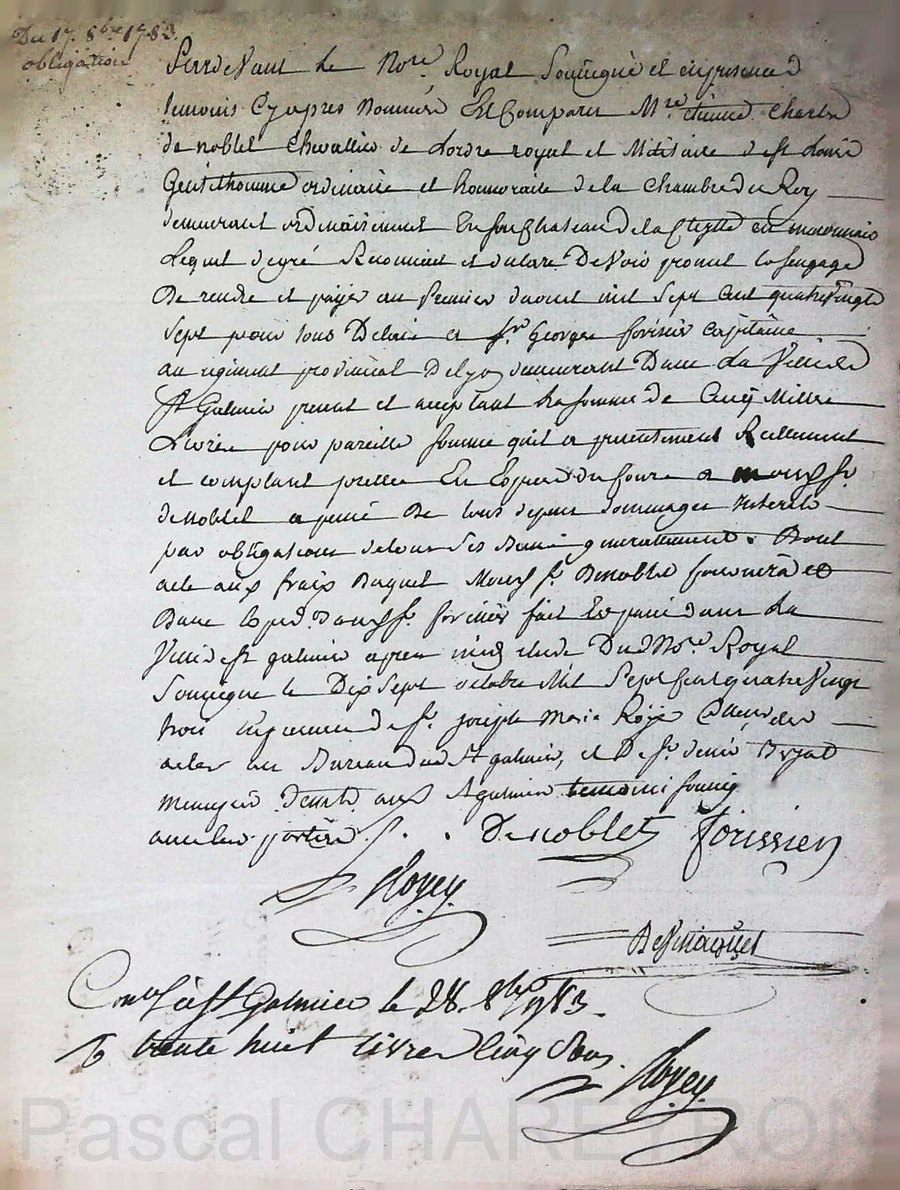 Du 17. 8bre 1783.
obligation
Pardevant Le Nore. Royal Soussigné et en presence d
temoins Cy apres Nommés Est Comparu Mre. Claude Charles
de noblet Chevallier de Lordre royal et Militaire de st Louis
Gentilhomme ordinaire et honnoraire de la Chambre du Roy
demeurant ordinairement En son Chateau de la Clayette en maconnais
Lequel de gré Reconnait et declare Devoir promet Et sengage
De rendre et payer au Premier daoust mil Sept Cent quatre Vingt
Sept pour tous Delais a sr. Georges forissier Capitaine
au régiment provincial De Lyon demeurant Dans La Ville de
St Galmier present et acceptant La somme de Cinq Mille
Livres pour pareille somme quil a presentement Reellement
et comptant prettée En Especes du Cours a mond sr.
de noblet a peine De tous depens dommages Interets
par obligations de tous Ses Biens generallement. Dont
acte aux fraix Duquel Mond sr. Denoblet fournira
Dans aud sr. forissier fait Et passé dans La
Ville de st galmier apres midy etude Dud Nore. Royal
Soussigné le Dix Sept octobre Mil Sept Cent quatre Vingt
trois En presence de sr. Joseph Marie Royé des
actes au Bureau dud St galmier, et De sr. denis
demt. aud St galmier temoins soussig
avec les parties.
Denoblet forissier
Royey
Desmaquet
Conlé à St Galmier le 28. 8bre 1783.
R trente huit livres Cinq Sous.
Royey
Pascal CHAREYRON